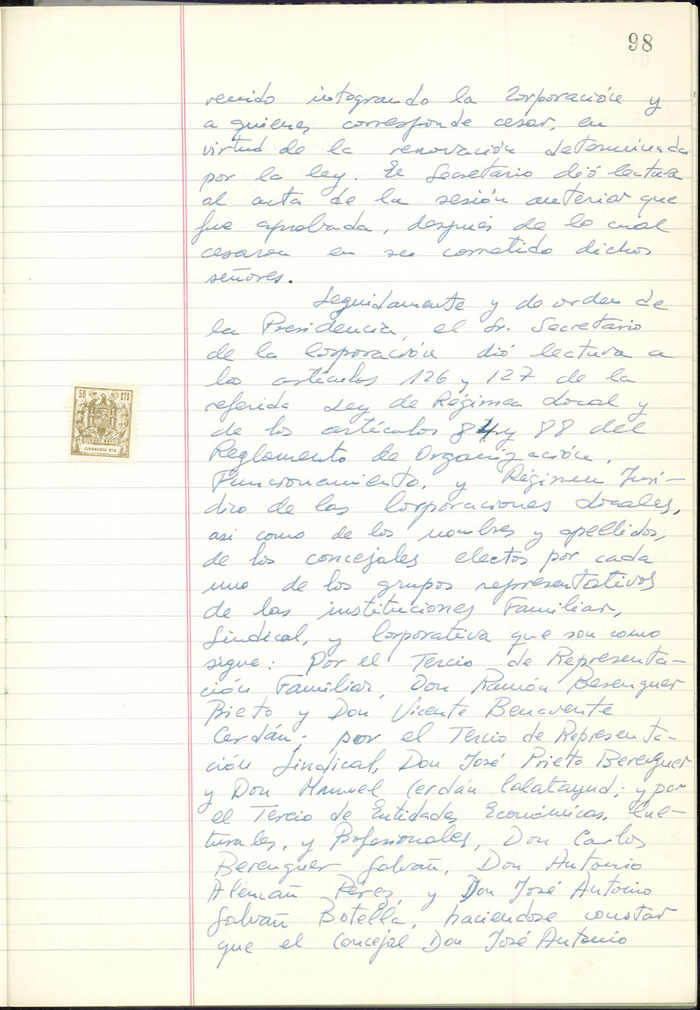 98
venido integrando la Corporación y
a quienes corresponde cesar, en
virtud de la renovación determinada
por la ley. El Secretario dió lectura
al acta de la sesión anterior que
fue aprobada, después de lo cual
cesaron en su cometido dichos
señores.
Seguidamente y de orden de
la Presidencia, el Sr. Secretario
de la Corporación dió lectura a
los artículos 126 y 127 de la
referida Ley de Régimen Local y
de los artículos 84 y 88 del
Reglamento de Organización,
Funcionamiento, y Régimen Jurí-
dico de las Corporaciones Locales,
asi como de los nombres y apellidos,
de los concejales electos por cada
uno de los grupos representativos
de las instituciones Familiar,
Sindical, y Corporativa que son como
sigue: Por el Tercio de Representa-
ción Familiar, Don Ramón Berenguer
Prieto y Don Vicente Benavente
Cerdán; por el Tercio de Representa-
ción Sindical, Don José Prieto Berenguer
y Don Manuel Cerdán Calatayud; y por
el Tercio de Entidades Económicas, Cul-
turales, y Profesionales, Don Carlos
Berenguer Galvañ, Don Antonio
Alemañ Pérez, y Don José Antonio
Galvañ Botella, haciendose constar
que el Concejal Don José Antonio
50 CTS